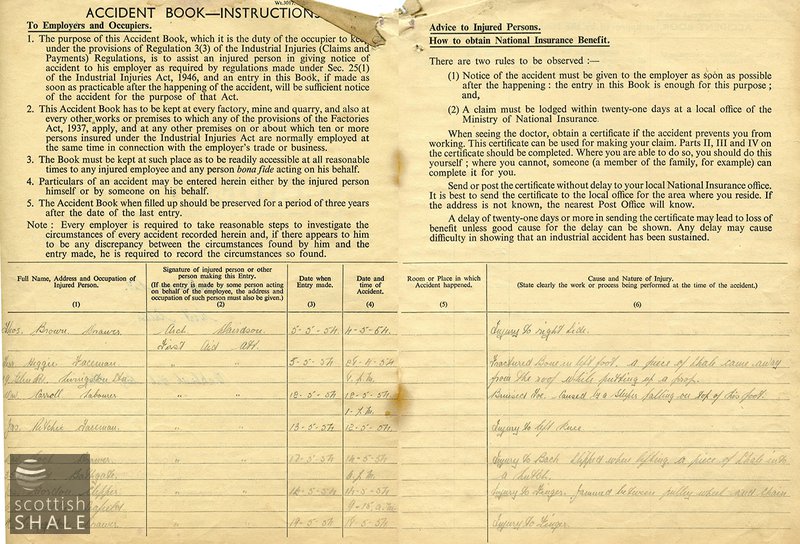 ACCIDENT BOOK—INSTRUCTIONS
To Employers and Occupiers.
1. The purpose of this Accident Book, which it is the duty of the occupier to
under the provisions of Regulation 3(3) of the Industrial Injuries (Claims and
Payments) Regulations, is to assist an injured person in giving notice of
accident to his employer as required by regulations made under Sec. 25(1)
of the Industrial Injuries Act, 1946, and an entry in this Book, if made as
soon as practicable after the happening of the accident, will be sufficient notice
of the accident for the purpose of that Act.
2. This Accident Book has to be kept at every factory, mine and quarry, and also at
every other works or premises to which any of the provisions of the Factories
Act, 1937, apply, and at any other premises on or about which ten or more
persons insured under the Industrial Injuries Act are normally employed at
the same time in connection with the employer's trade or business.
3. The Book must be kept at such place as to be readily accessible at all reasonable
times to any injured employee and any person bona fide acting on his behalf.
4. Particulars of an accident may be entered herein either by the injured person
himself or by someone on his behalf.
5. The Accident Book when filled up should be preserved for a period of three years
after the date of the last entry.
Note : Every employer is required to take reasonable steps to investigate the
circumstances of every accident recorded herein and, if there appears to him
to be any discrepancy between the circumstances found by him and the
entry made, he is required to record the circumstances so found.
Advice to Injured Persons.
How to obtain National Insurance Benefit.
There are two rules to be observed :—
(1) Notice of the accident must be given to the employer as soon as possible
after the happening : the entry in this Book is enough for this purpose ;
and,
(2) A claim must be lodged within twenty-one days at a local office of the
Ministry of National Insurance.
When seeing the doctor, obtain a certificate if the accident prevents you from
working. This certificate can be used for making your claim. Parts II, III and IV on
the certificate should be completed. Where you are able to do so, you should do this
yourself ; where you cannot, someone (a member of the family, for example) can
complete it for you.
Send or post the certificate without delay to your local National Insurance office.
It is best to send the certificate to the local office for the area where you reside. If
the address is not known, the nearest Post Office will know.
A delay of twenty-one days or more in sending the certificate may lead to loss of
benefit unless good cause for the delay can be shown. Any delay may cause
difficulty in showing that an industrial accident has been sustained.
Full Name, Address and Occupation of
Injured Person.
(1)
Signature of injured person or other
person making this Entry.
(If the entry is made by some person acting
on behalf of the employee, the address and
occupation of such person must also be given.)
(2)
Date when
Entry made.
(3)
Date and
time of
Accident.
(4)
Room or Place in which
Accident happened.
(5)
Cause and Nature of Injury.
(State clearly the work or process being performed at the time of the accident.)
(6)
Brown Drawer Arch 5-5-54 4-5-54 Injury to right side.
First Aid Att.
Faceman " " 5-5-54 Fractured Bone in left foot. a piece of shale came away
Livingston from the roof while putting up a prop.
Carroll Labourer " " Bruised Toe. Caused by a sleeper falling on top of his foot.
Ritchie Faceman " " 13-5-54 12-5-54 Injury to left knee.
Drawer " " 17-5-54 Injury to Back. Slipped when lifting a piece of shale into
Bathgate. a hutch.
" " Injury to Finger. Jammed between pulley wheel and chain
9-15 a.m.
Drawer " " 19-5-54 Injury to Finger.
scottish
SHALE